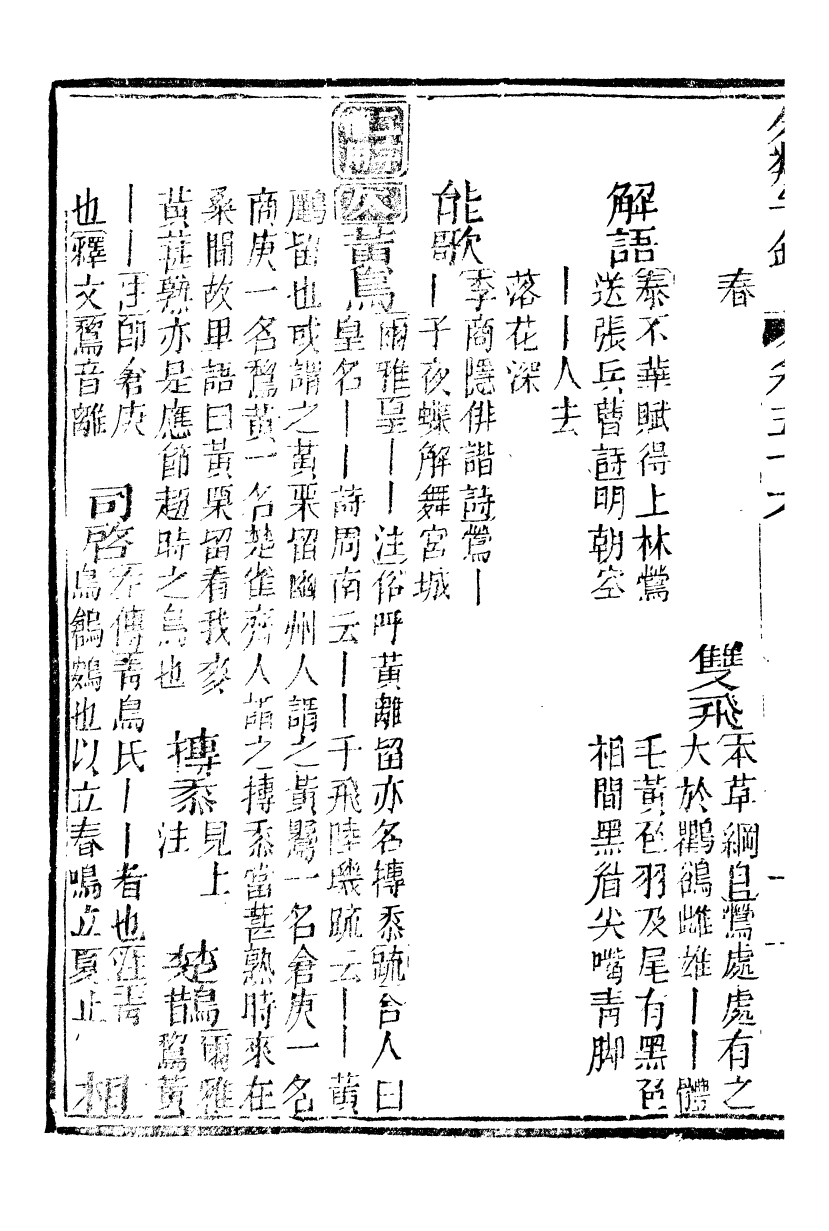 春
雙飛
本草綱目鶯處處有之
大於鸜鵒雌雄丨丨體
毛黃色羽及尾有黑色
相間黑眉尖嘴青脚
解語
泰不華賦得上林鶯
送張兵曹詩明朝空
丨丨人去
落花深
能歌
李商隱俳諧詩鶯丨
丨子夜蝶解舞宮城
黃鳥
爾雅皇丨丨注俗呼黃離留亦名摶黍疏舍人曰
皇名丨丨詩周南云丨丨于飛陸璣疏云丨丨黃
鸝留也或謂之黃栗留幽州人謂之黃鸎一名倉庚一名
商庚一名鵹黃一名楚雀齊人謂之摶黍當葚熟時來在
桑間故里語曰黃栗留看我麥
黃葚熟亦是應節趨時之鳥也
摶黍
見上
注
楚鵲
爾雅
鵹黃
丨丨注卽倉庚
也釋文鵹音離
司啓
左傳青鳥氏丨丨者也注青
鳥鶬鴳也以立春鳴立夏止
相